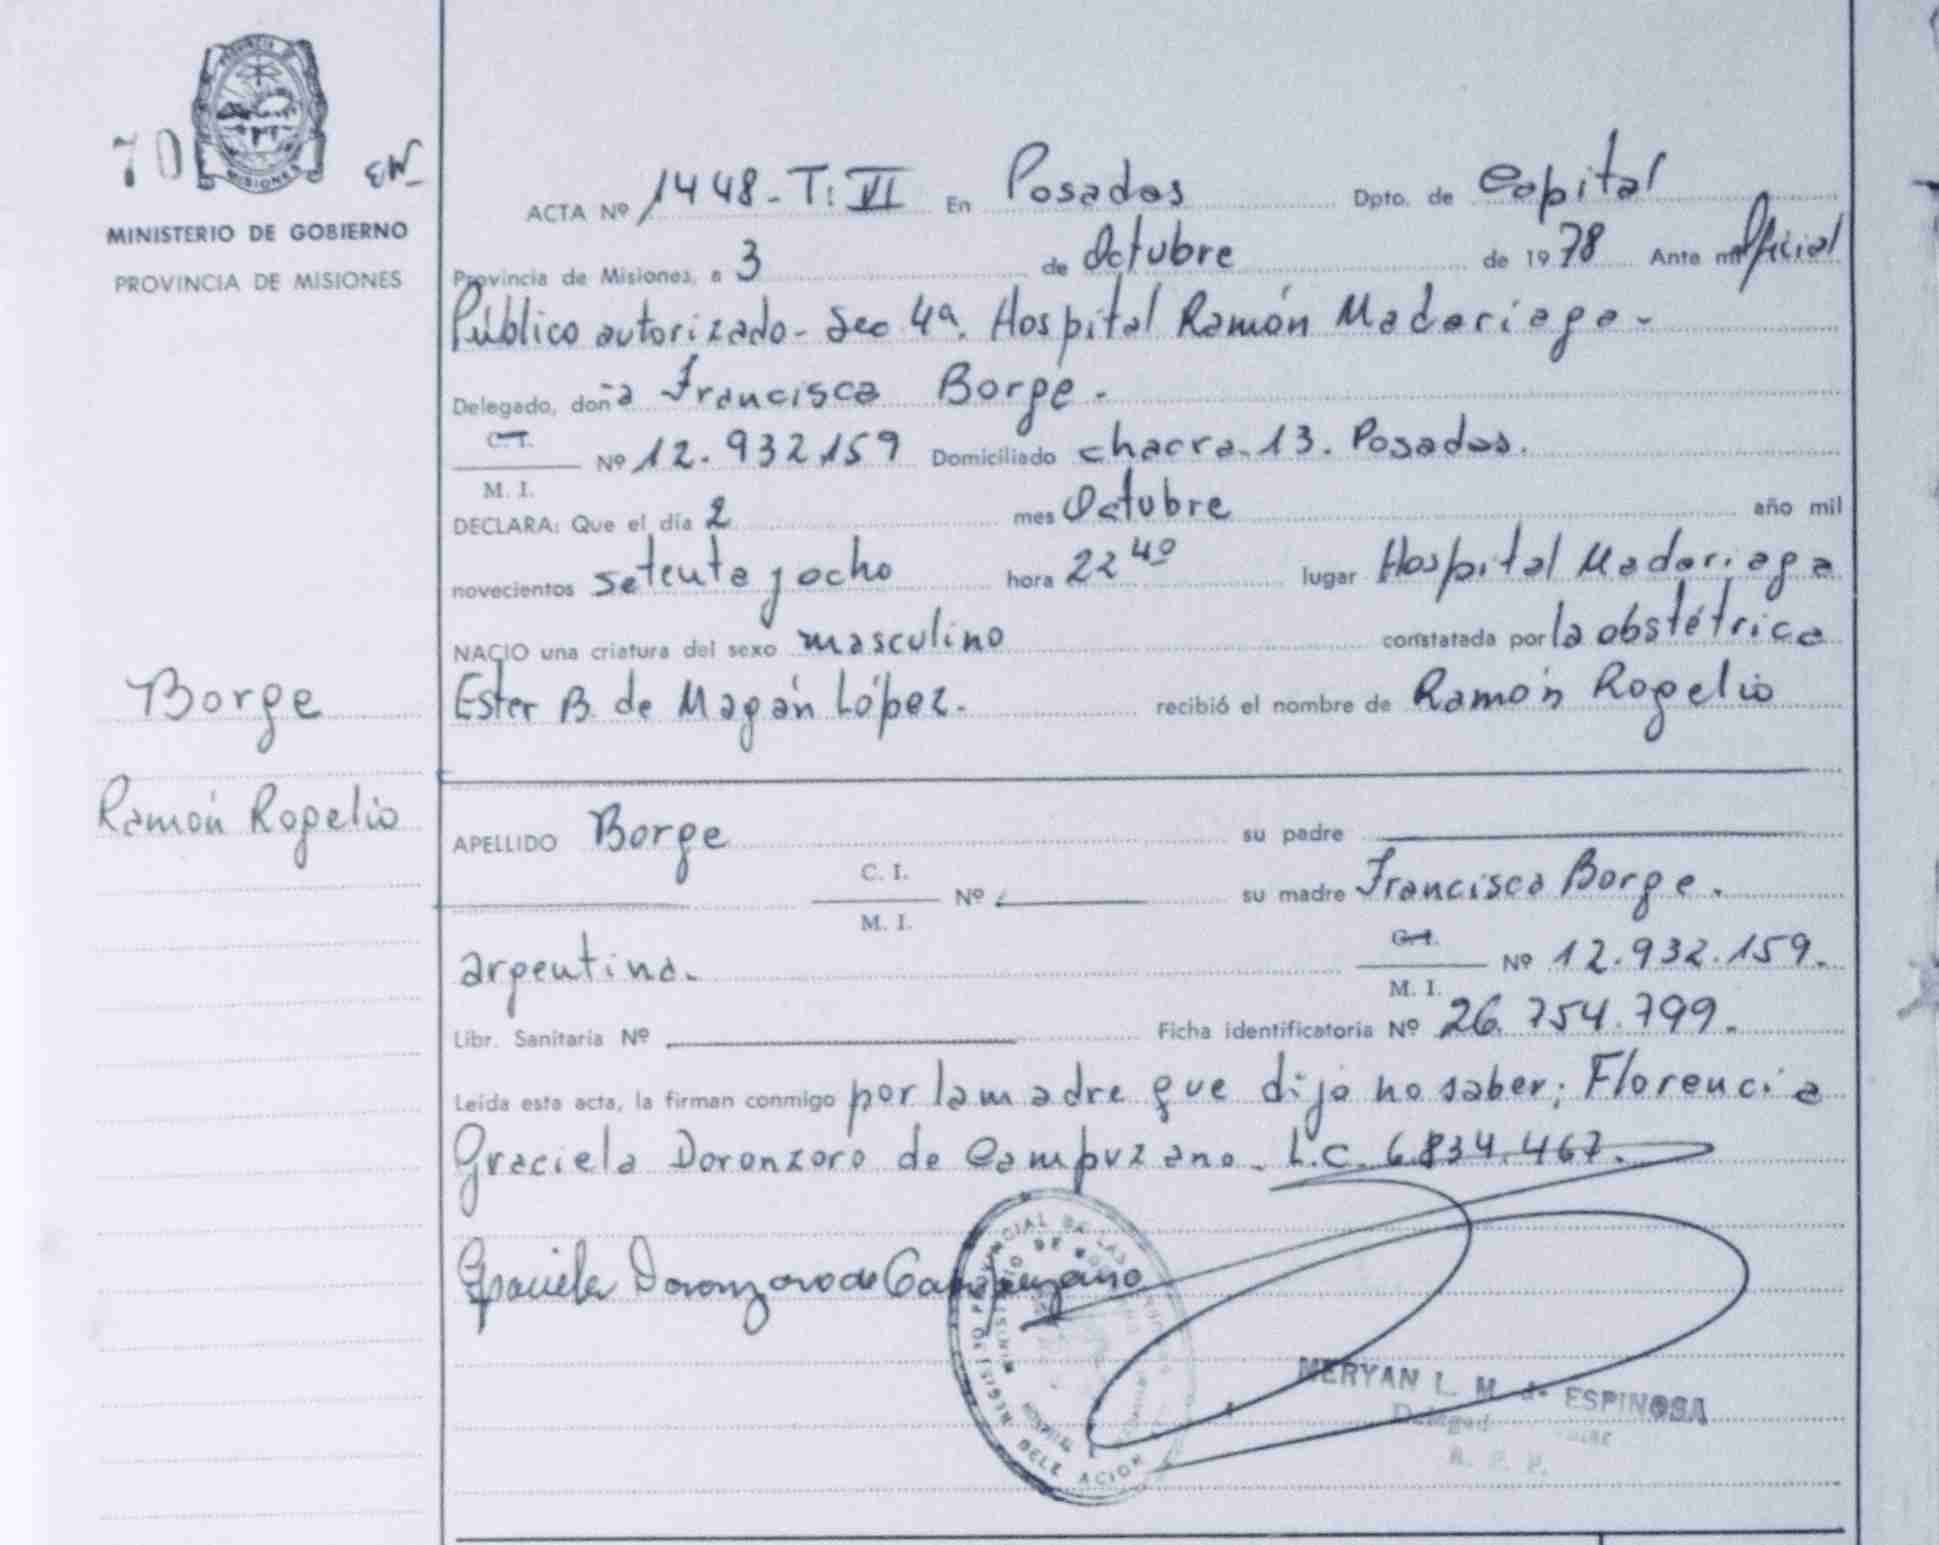 PROVINCIA DE
MISIONES
70
MINISTERIO DE GOBIERNO
PROVINCIA DE MISIONES
Borge
Ramón Rogelio
ACTA Nº 1448 - T: VI En Posadas Dpto. de Capital
Provincia de Misiones, a 3 de Octubre de 1978 Ante mi Oficial
Público autorizado - Sec 4ª. Hospital Ramón Madariaga -
Delegado, doña Francisca Borge.
C. I.
Nº 12.932.159 Domiciliado chacra 13. Posadas.
M. I.
DECLARA: Que el día 2 mes Octubre año mil
novecientos setenta y ocho hora 22 40 lugar Hospital Madariaga
NACIO una criatura del sexo masculino constatada por la obstétrica
Ester B. de Magán López. recibió el nombre de Ramón Rogelio
APELLIDO Borge su padre
C. I.
Nº su madre Francisca Borge.
M. I.
C. I.
argentina. Nº 12.932.159.
M. I.
Libr. Sanitaria Nº Ficha identificatoria Nº 26.754.799.
Leída esta acta, la firman conmigo por la madre que dijo no saber; Florencia
Graciela Doronzoro de Campuzano. L.C. 6.834.467.
Graciela Doronzoro de Campuzano
MERYAN L. M. de ESPINOSA